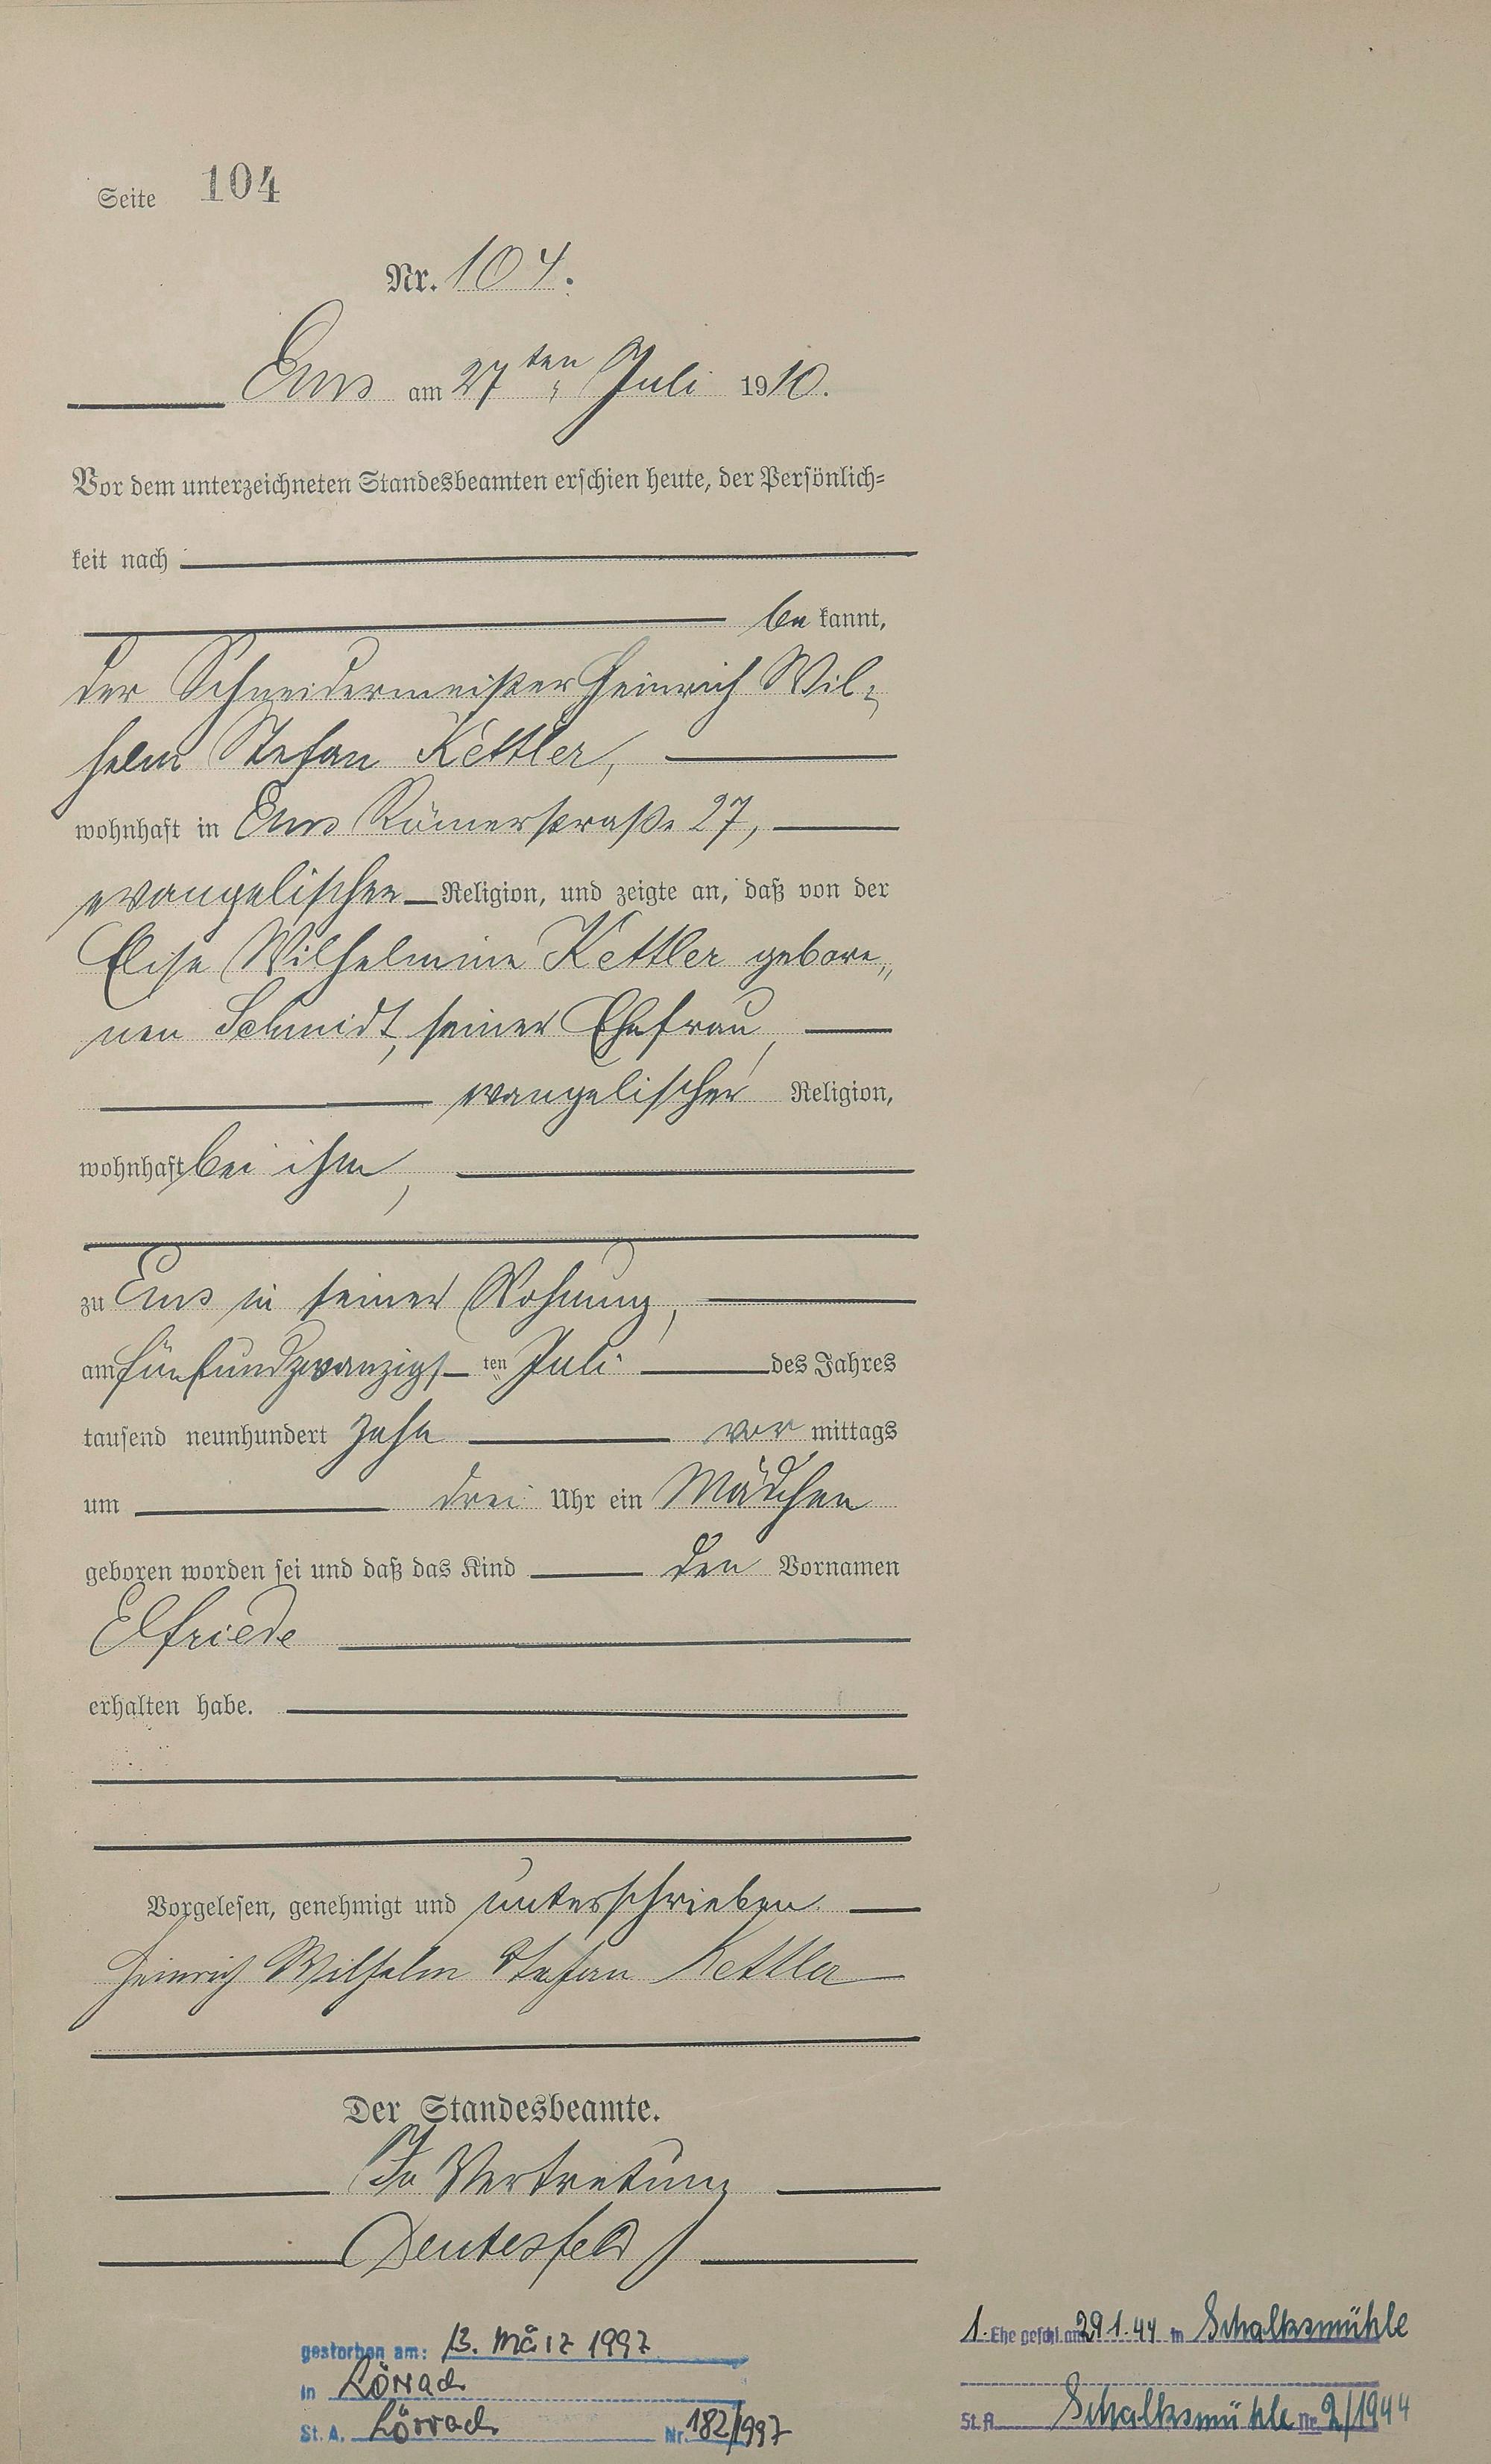 Seite 104
Nr. 104.
Ems am 27ten Juli 1910.
Vor dem unterzeichneten Standesbeamten erschien heute, der Persönlich=
keit nach
be kannt,
der Schneidermeister Heinrich Wil=
helm Stefan Kettler,
wohnhaft in Ems Römerstraße 27,
evangelischer Religion, und zeigte an, daß von der
Elise Wilhelmine Kettler gebore„
nen Schmidt, seiner Ehefrau,
evangelischer Religion,
wohnhaft bei ihm,
zu Ems in seiner Wohnung,
am fünfundzwanzigsten Juli des Jahres
tausend neunhundert zehn vor mittags
um drei Uhr ein Mädchen
geboren worden sei und daß das Kind den Vornamen
Elfriede
erhalten habe.
Vorgelesen, genehmigt und unterschrieben.
Heinrich Wilhelm Stefan Kettler
Der Standesbeamte.
In Vertretung
Deutesfeld
gestorben am: 13. März 1997
in Lörrach
St. A. Lörrach Nr. 182/1997
1. Ehe geschl. am 29.1.44 in Schalksmühle
St. A. Schalksmühle Nr. 2/1944